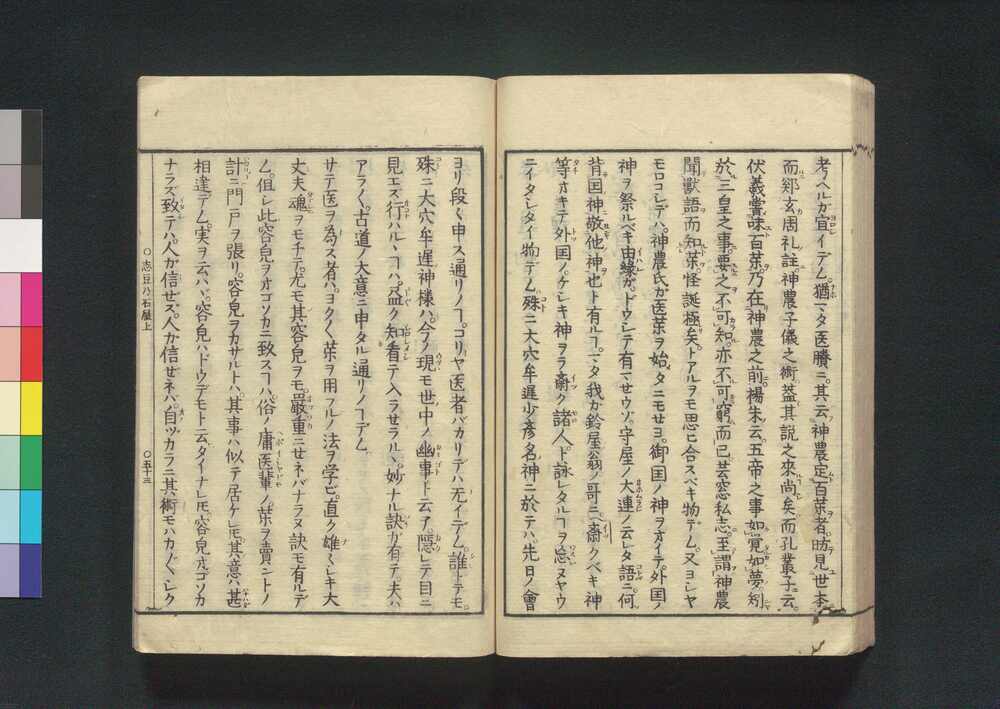 考ヘルガ宜イデム。猶マタ医賸ニ。其云神農定百薬者。昉見世本
而鄭玄周礼註神農子儀之術。葢其説之來尚矣。而孔叢子云。
伏羲嘗味百薬。乃在神農之前。楊朱云。五帝之事如覚如夢。矧
於三皇之事。要之不可知。亦不可窮而已。芸窓私志。至謂神農
聞獣語而知薬。怪誕極矣。トアルヲモ思ヒ合スベキ物デム。又ヨシヤ
モロコシデハ。神農氏ガ医薬ヲ始メタニモセヨ。御国ノ神ヲオイテ。外国ノ
神ヲ祭ルベキ由縁ガ。ドウシテ有マセウゾ。守屋ノ大連ノ云レタ語ニ。何
背国神敬他神也ト有ル。マタ我ガ鈴屋翁ノ哥ニ。斎クベキ神
等オキテ外国ノ。ケシキ神ヲラ斎ク諸人。ト詠レタルヿヲ。忘ヌヤウ
ニイタシタイ物デム。殊ニ大穴牟遅少彦名神ニ於テハ。先日ノ會
ヨリ段々申ス通リノヿ。ゴリヤ医者バカリデハ无イデム。誰トテモ。
殊ニ大穴牟遅神様ハ。今ノ現モ世中ノ幽事ト云ヲ。隠レテ目ニ
見エズ行ハルヽヿハ。盈ク知看テ入ラセラルヽ。妙ナル訣ガ有テ。夫ハ
アラ〳〵。古道ノ大意ニ申タル通リノヿデム
サテ医ヲ為ス者ハ。ヨクく薬ヲ用フルノ法ヲ学ビ。直ク雄々シキ大
丈夫魂ヲモチテ。尤モ其容皃ヲモ。嚴重ニセネバナラヌ訣モ有ルデ
ム。但シ此容皃ヲオゴソカニ致スヿハ。俗ノ庸医輩ノ。薬ヲ賣ントノ
計ニ。門戸ヲ張リ。容皃ヲカサルトハ。其事ハ似テ居ケレ𪜈。其意ハ甚
相違デム。実ヲ云ハヾ。容皃ハドウデモト云タイナレ𪜈。容皃オゴソカ
ナラズ致テハ。人ガ信セズ。人ガ信ゼネバ。自ツカラニ其術モハカ〴〵シク
○志豆乃石屋上
○五十三